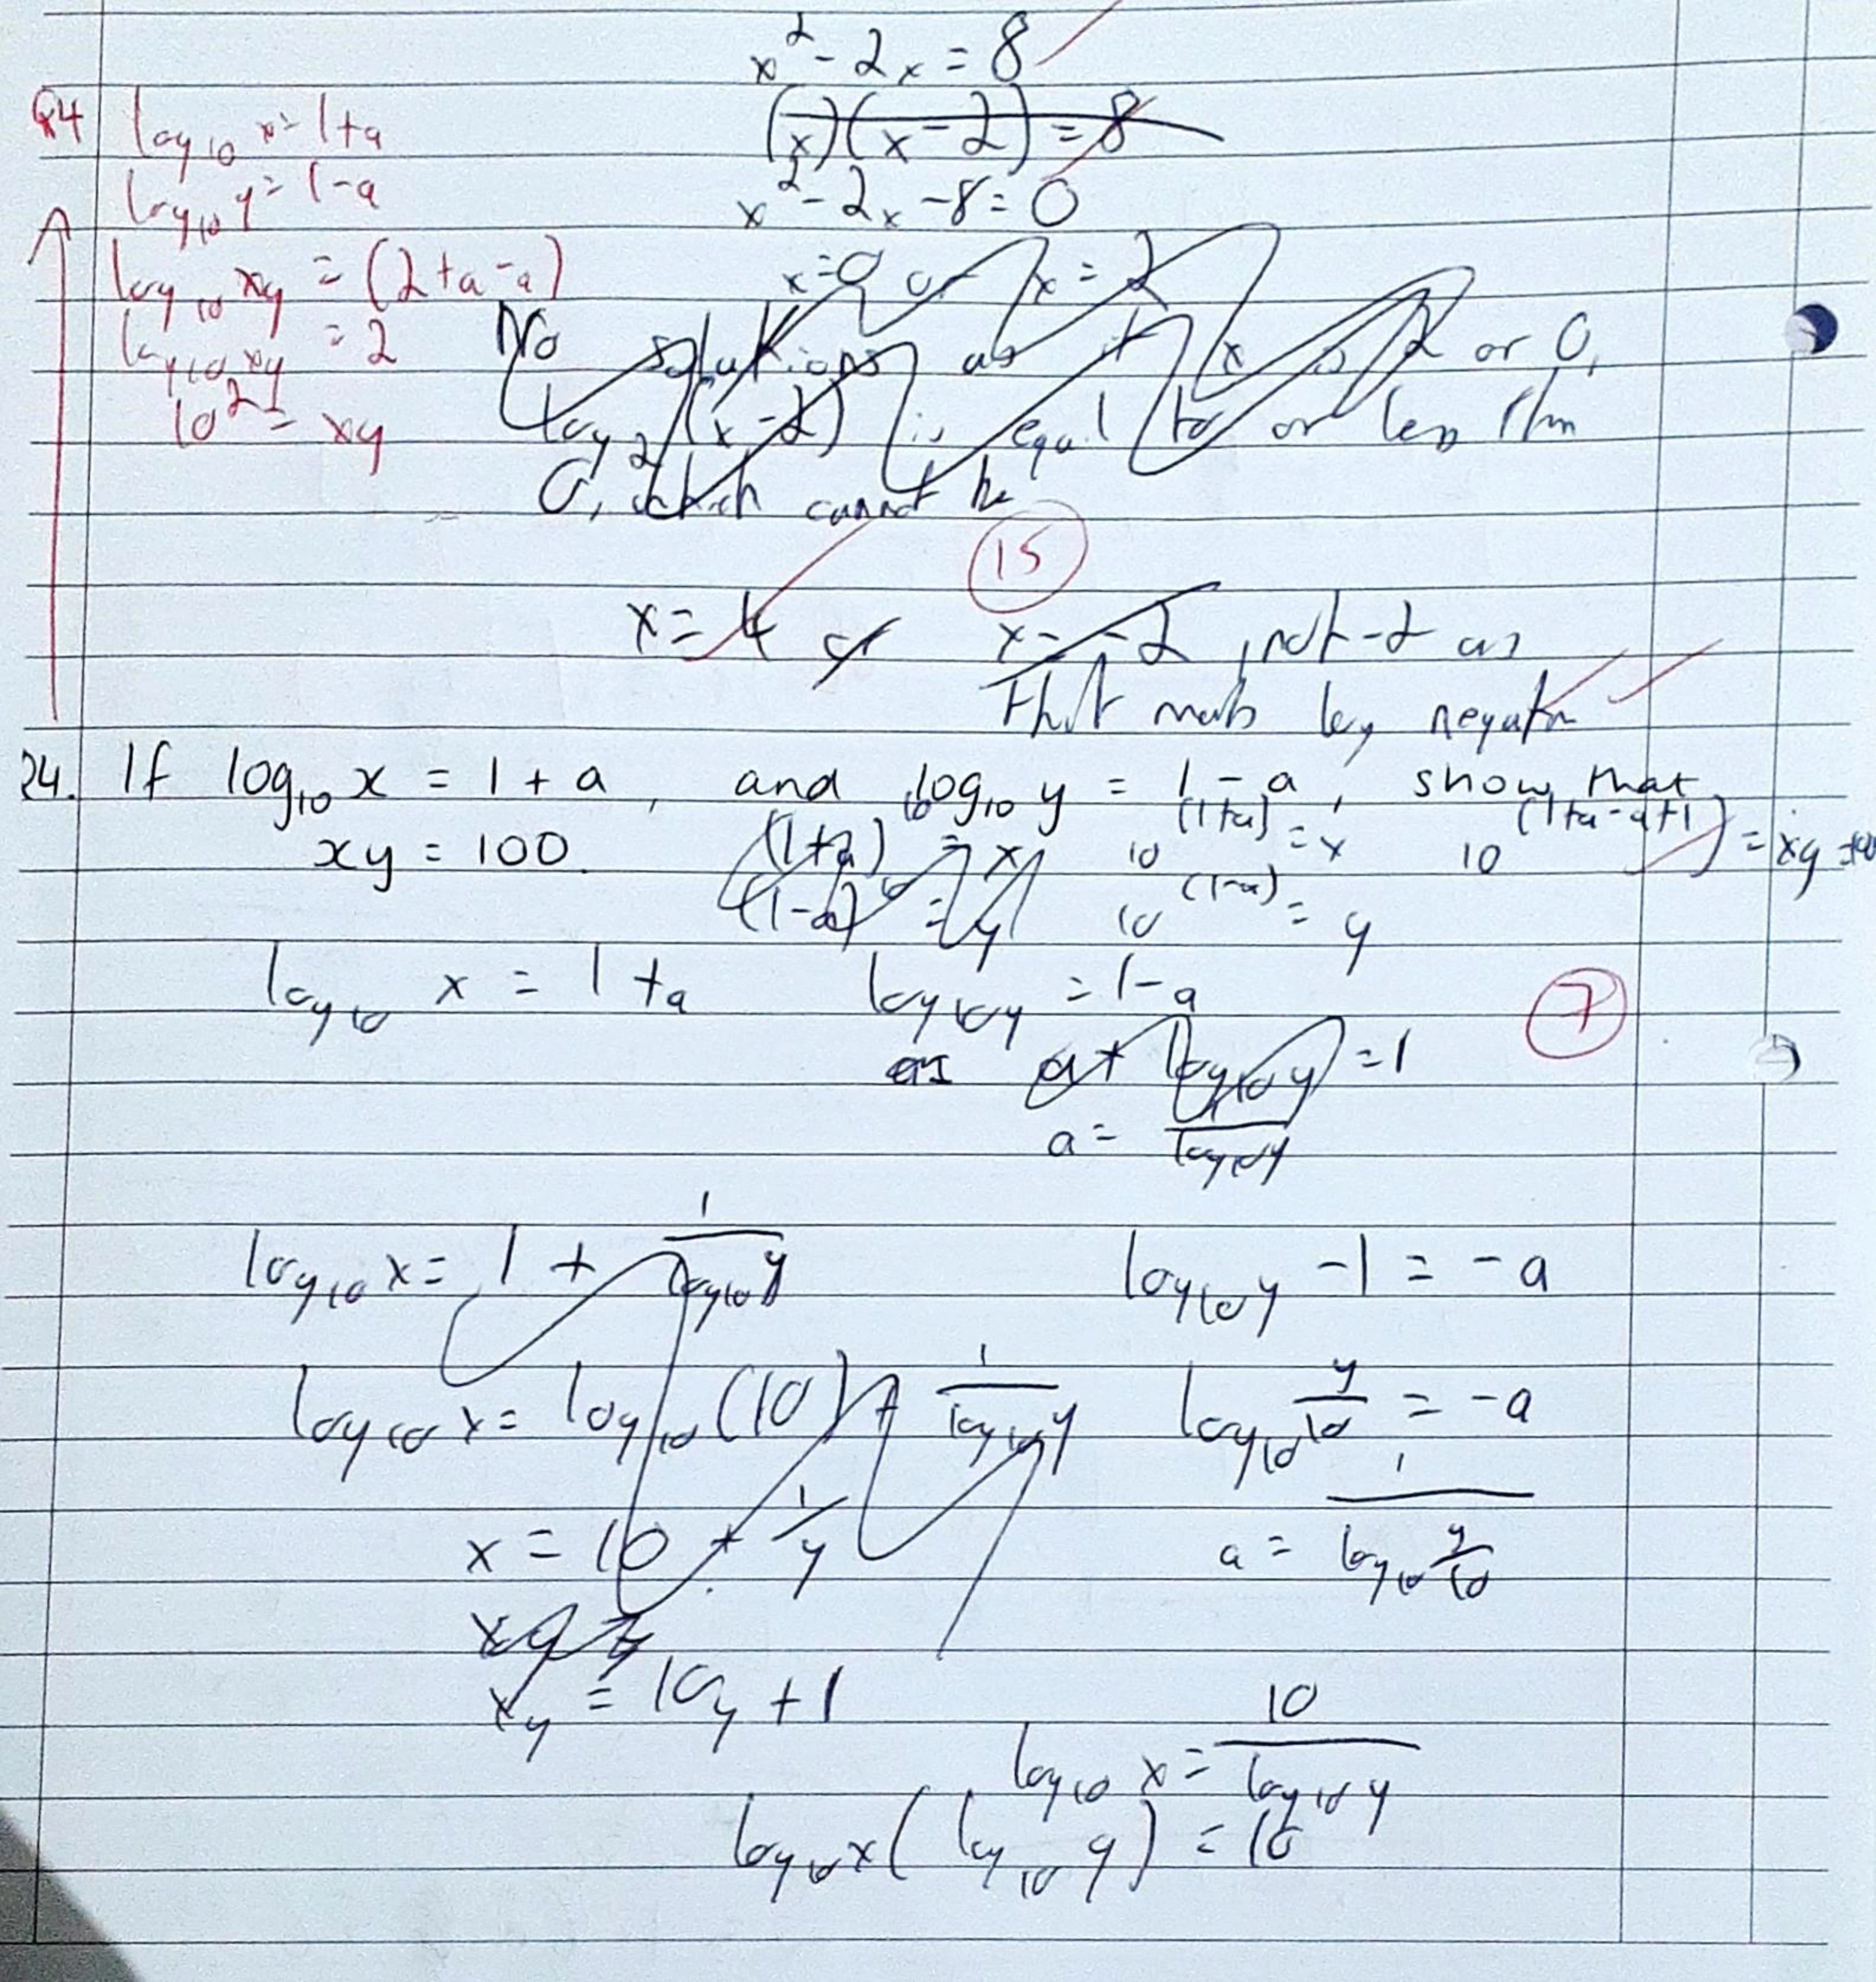 x² - 2x = 8
(x)(x - 2) = 8
x² - 2x - 8 = 0
x = 0 or x = 2
No solutions as if x is 2 or 0,
log₂(x - 2) is equal to or less than
0, which cannot be
Q4 log₁₀ x = 1 + a
log₁₀ y = 1 - a
log₁₀ xy = (2 + a - a)
log₁₀ xy = 2
10² = xy
15
x = 4 or x = -2, not -2 as
that makes log negative
Q4. If log₁₀ x = 1 + a, and log₁₀ y = 1 - a, show that
xy = 100.
(1+a)¹⁰ = x
(1-a)¹⁰ = y
10^(1+a) = x
10^(1-a) = y
10^(1+a-a+1) = xy = 100
log₁₀ x = 1 + a log₁₀ y = 1 - a
7
a + log₁₀ y = 1
a = 1/log₁₀ y
log₁₀ x = 1 + 1/log₁₀ y log₁₀ y - 1 = -a
log₁₀ x = log₁₀ (10) + 1/log₁₀ y log₁₀ y/10 = -a
x = 10 + 1/y a = 1/log₁₀ y/10
xy =
xy = 10y + 1
log₁₀ x = 10/log₁₀ y
log₁₀ x (log₁₀ y) = 10